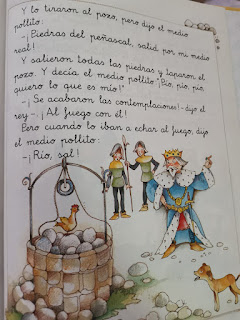 Y lo tiraron al pozo, pero dijo el medio
pollito:
-¡Piedras del peñascal, salid por mi medio
real!
Y salieron todas las piedras y taparon el
pozo. Y decía el medio pollito: "Pío, pío, pío,
quiero lo que es mío!"
-¡Se acabaron las contemplaciones!-dijo el
rey-. ¡Al fuego con él!
Pero cuando lo iban a echar al fuego, dijo
el medio pollito:
-¡Río, sal!